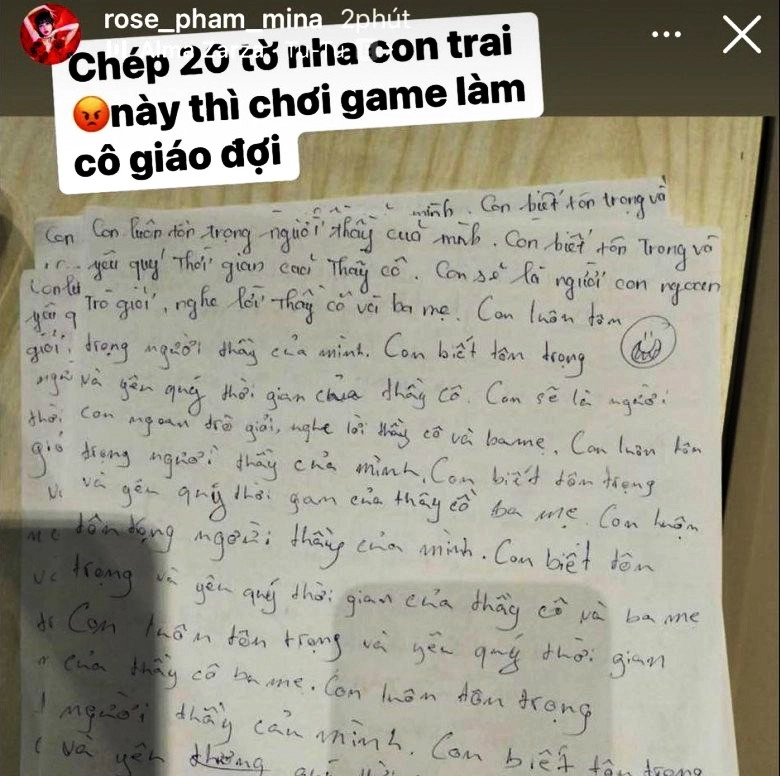 rose_pham_mina 2phút
Chép 20 tờ nha con trai
😡này thì chơi game làm
cô giáo đợi
mình. Con biết tôn trọng và
Con Con luôn tôn trọng người thầy của mình. Con biết tôn trọng và
yêu quý thời gian thầy cô. Con sẽ là người con ngoan
Trò giỏi, nghe lời thầy cô và ba mẹ. Con luôn tôn
trọng người thầy của mình. Con biết tôn trọng
và yêu quý thời gian của thầy cô. Con sẽ là người
con ngoan trò giỏi, nghe lời thầy cô và ba mẹ. Con luôn tôn
trọng người thầy của mình. Con biết tôn trọng
và yêu quý thời gan của thầy cô ba mẹ. Con luôn
tôn trọng người thầy của mình. Con biết tôn
trọng và yêu quý thời gian của thầy cô và ba mẹ
Con luôn tôn trọng và yêu quý thời gian
của thầy cô ba mẹ. Con luôn tôn trọng
người thầy của mình. Con biết tôn trọng
và yêu thương